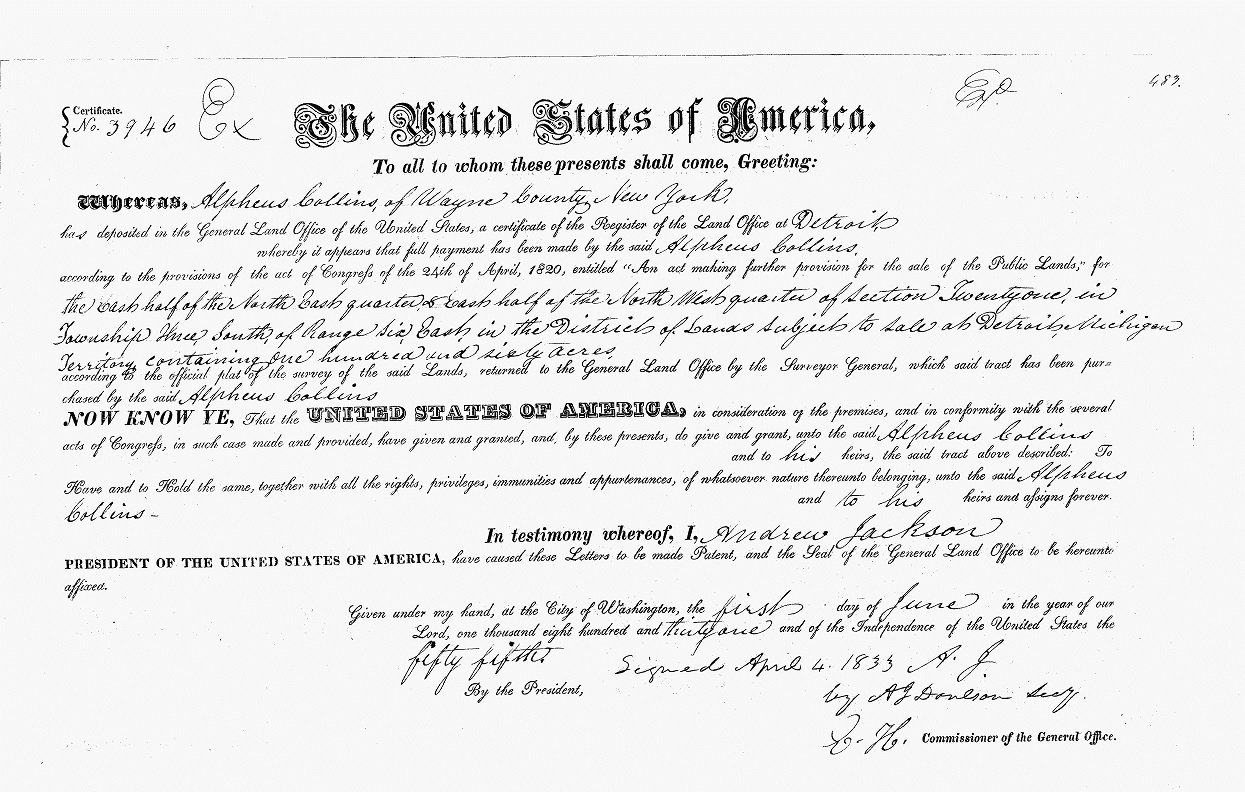 483.
Certificate.
No. 3946 Ex The United States of America, Ex
To all to whom these presents shall come, Greeting:
Whereas, Alpheus Collins, of Wayne County, New York,
has deposited in the General Land Office of the United States, a certificate of the Register of the Land Office at Detroit
whereby it appears that full payment has been made by the said Alpheus Collins,
according to the provisions of the act of Congress of the 24th of April, 1820, entitled "An act making further provision for the sale of the Public Lands," for
the East half of the North East quarter, & East half of the North West quarter of Section Twenty one, in
Township Three South, of Range Six, East, in the District of Lands subject to sale at Detroit, Michigan
Territory, containing One hundred and sixty acres,
according to the official plat of the survey of the said Lands, returned to the General Land Office by the Surveyor General, which said tract has been pur=
chased by the said Alpheus Collins
NOW KNOW YE, That the UNITED STATES OF AMERICA, in consideration of the premises, and in conformity with the several
acts of Congress, in such case made and provided, have given and granted, and, by these presents, do give and grant, unto the said Alpheus Collins
and to his heirs, the said tract above described: To
Have and to Hold the same, together with all the rights, privileges, immunities and appurtenances, of whatsoever nature thereunto belonging, unto the said Alpheus
Collins – and to his heirs and assigns forever.
In testimony whereof, I, Andrew Jackson
PRESIDENT OF THE UNITED STATES OF AMERICA, have caused these Letters to be made Patent, and the Seal of the General Land Office to be hereunto
affixed.
Given under my hand, at the City of Washington, the first day of June in the year of our
Lord, one thousand eight hundred and thirty one and of the Independence of the United States the
fifty fifth
Signed April 4. 1833 A. J
By the President,
by A J Donelson Secy.
Commissioner of the General Office.